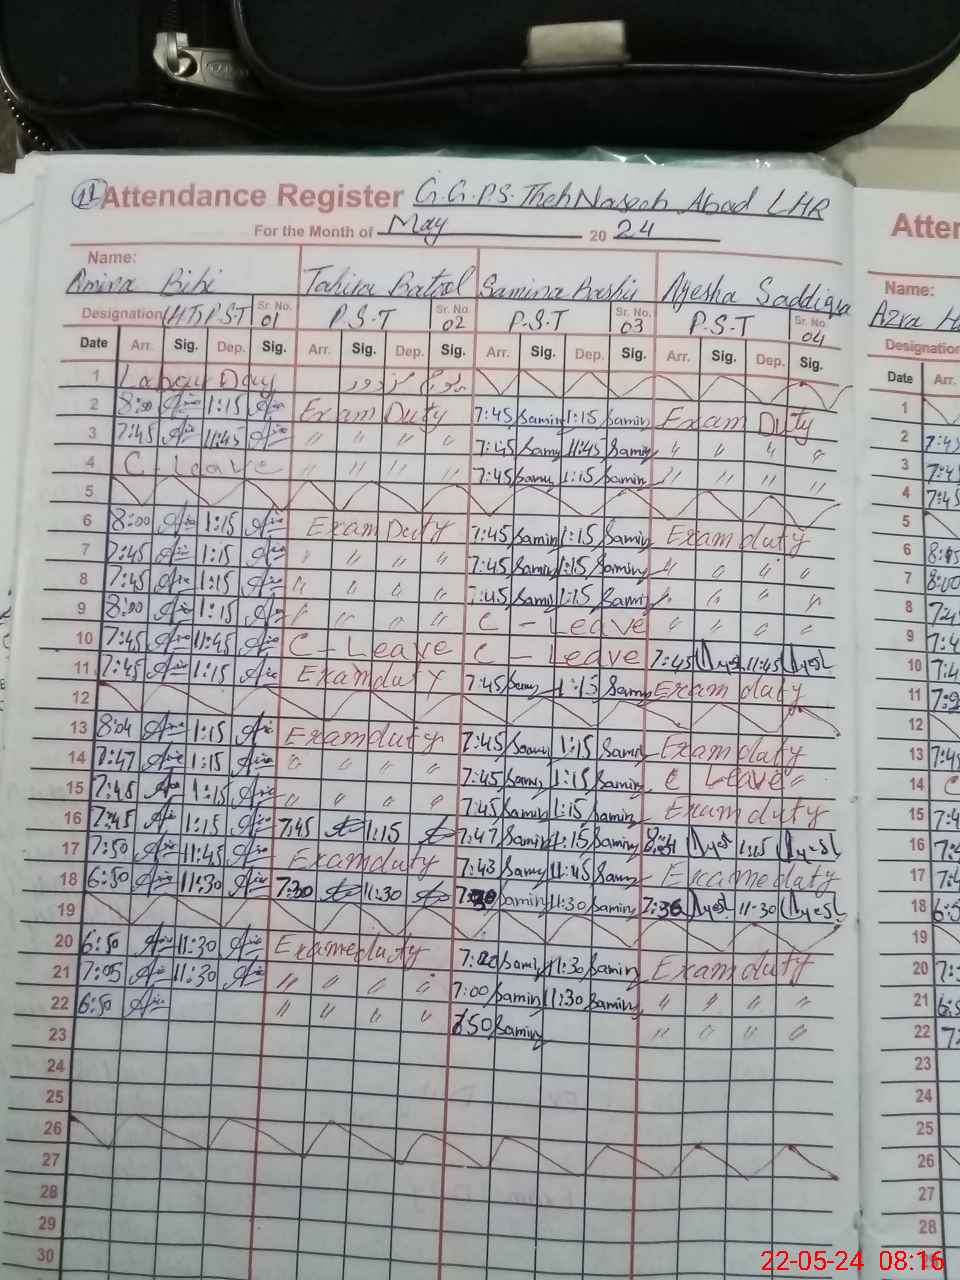 11 Attendance Register G.G.P.S. Theh Naseeb Abad LHR
For the Month of May 2024
Name:
Amina Bibi Tahira Batool Samina Bashir Ayesha Saddiqa
Designation (HT) P.S.T Sr. No. 01 P.S.T Sr. No. 02 P.S.T Sr. No. 03 P.S.T Sr. No. 04
Date Arr. Sig. Dep. Sig. Arr. Sig. Dep. Sig. Arr. Sig. Dep. Sig. Arr. Sig. Dep. Sig.
1 Labour Day
2 8:00 1:15 Exam Duty 7:45 Samina 1:15 Samina Exam Duty
3 7:45 11:45 " " " " 7:45 Samina 11:45 Samina " " " "
4 C - Leave " " " " 7:45 Samina 1:15 Samina " " " "
5
6 8:00 1:15 Exam Duty 7:45 Samina 1:15 Samina Exam duty
7 7:45 1:15 " " " " 7:45 Samina 1:15 Samina " " " "
8 7:45 1:15 " " " " 7:45 Samina 1:15 Samina " " " "
9 8:00 1:15 " " " " C - Leave " " " "
10 7:45 11:45 C - Leave C Leave 7:45 Ayesh 11:45 Ayesh
11 7:45 1:15 Exam duty 7:45 Samina 1:15 Samina Exam duty
12
13 8:04 1:15 Exam duty 7:45 Samina 1:15 Samina Exam duty
14 7:47 1:15 " " " " 7:45 Samina 1:15 Samina C Leave "
15 7:48 1:15 " " " " 7:45 Samina 1:15 Samina Exam duty
16 7:45 1:15 7:45 1:15 7:47 Samina 1:15 Samina Ayesh 1:15 Ayesh
17 7:50 11:45 Exam duty 7:43 Samina 11:45 Samina Exame duty
18 6:50 11:30 7:30 11:30 Samina 11:30 Samina 7:36 Ayesh 11:30 Ayesh
19
20 6:50 11:30 Exame duty Samina 11:30 Samina Exam duty
21 7:05 11:30 " " " " 7:00 Samina 11:30 Samina " " " "
22 6:50 " " " " 6:50 Samina " " " "
23
24
25
26
27
28
29
30
Atten
Name:
Azra
Designation
Date Arr.
1
2 7:45
3 7:4
4 7:45
5
6
7 8:00
8 7:4
9 7:4
10 7:4
11
12
13 7:45
14 C
15 7:4
16 7:4
17 7:4
18 6:5
19
20 7:
21 6:5
22 7:
23
24
25
26
27
28
22-05-24 08:16